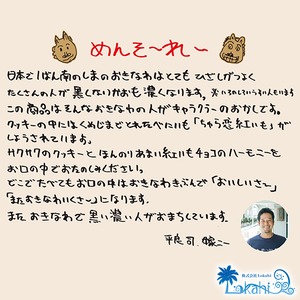 めんそ〜れ〜
日本で1ばん南のしまのおきなわはとても ひざしがつよく
たくさんの人が 黒くないかおも濃くなります。
この商品はそんなおきなわの人がキャラクターのおかしです。
クッキーの中にはくめじまでとれたべにいも「ちゅら恋紅いも」が
しようされています。
サクサクのクッキーと ほんのりあまい紅いもチョコのハーモニーを
お口の中でおたのしみください。
どこでたべてもお口の中はおきなわきぶんで「おいしいさ〜」
「またおきなわいくさ〜」になります。
また おきなわで 黒い濃い人がおまちしています。
平良 司
株式会社Lokahi
Lokahi